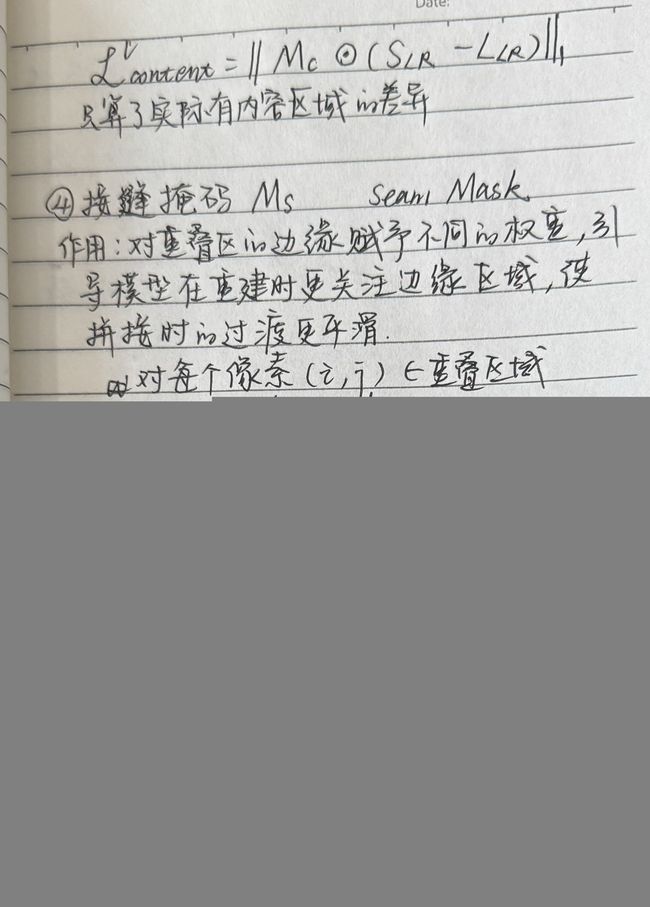 Date:
L^l_content = ‖ Mc ⊙ (S_LR - L_LR) ‖₁
只算了实际有内容区域的差异
④ 接缝掩码 Ms Seam Mask
作用：对重叠区的边缘赋予不同的权重，引
导模型在重建时更关注边缘区域，使
拼接时的过渡更平滑.
对每个像素 (i, j) ∈ 重叠区域